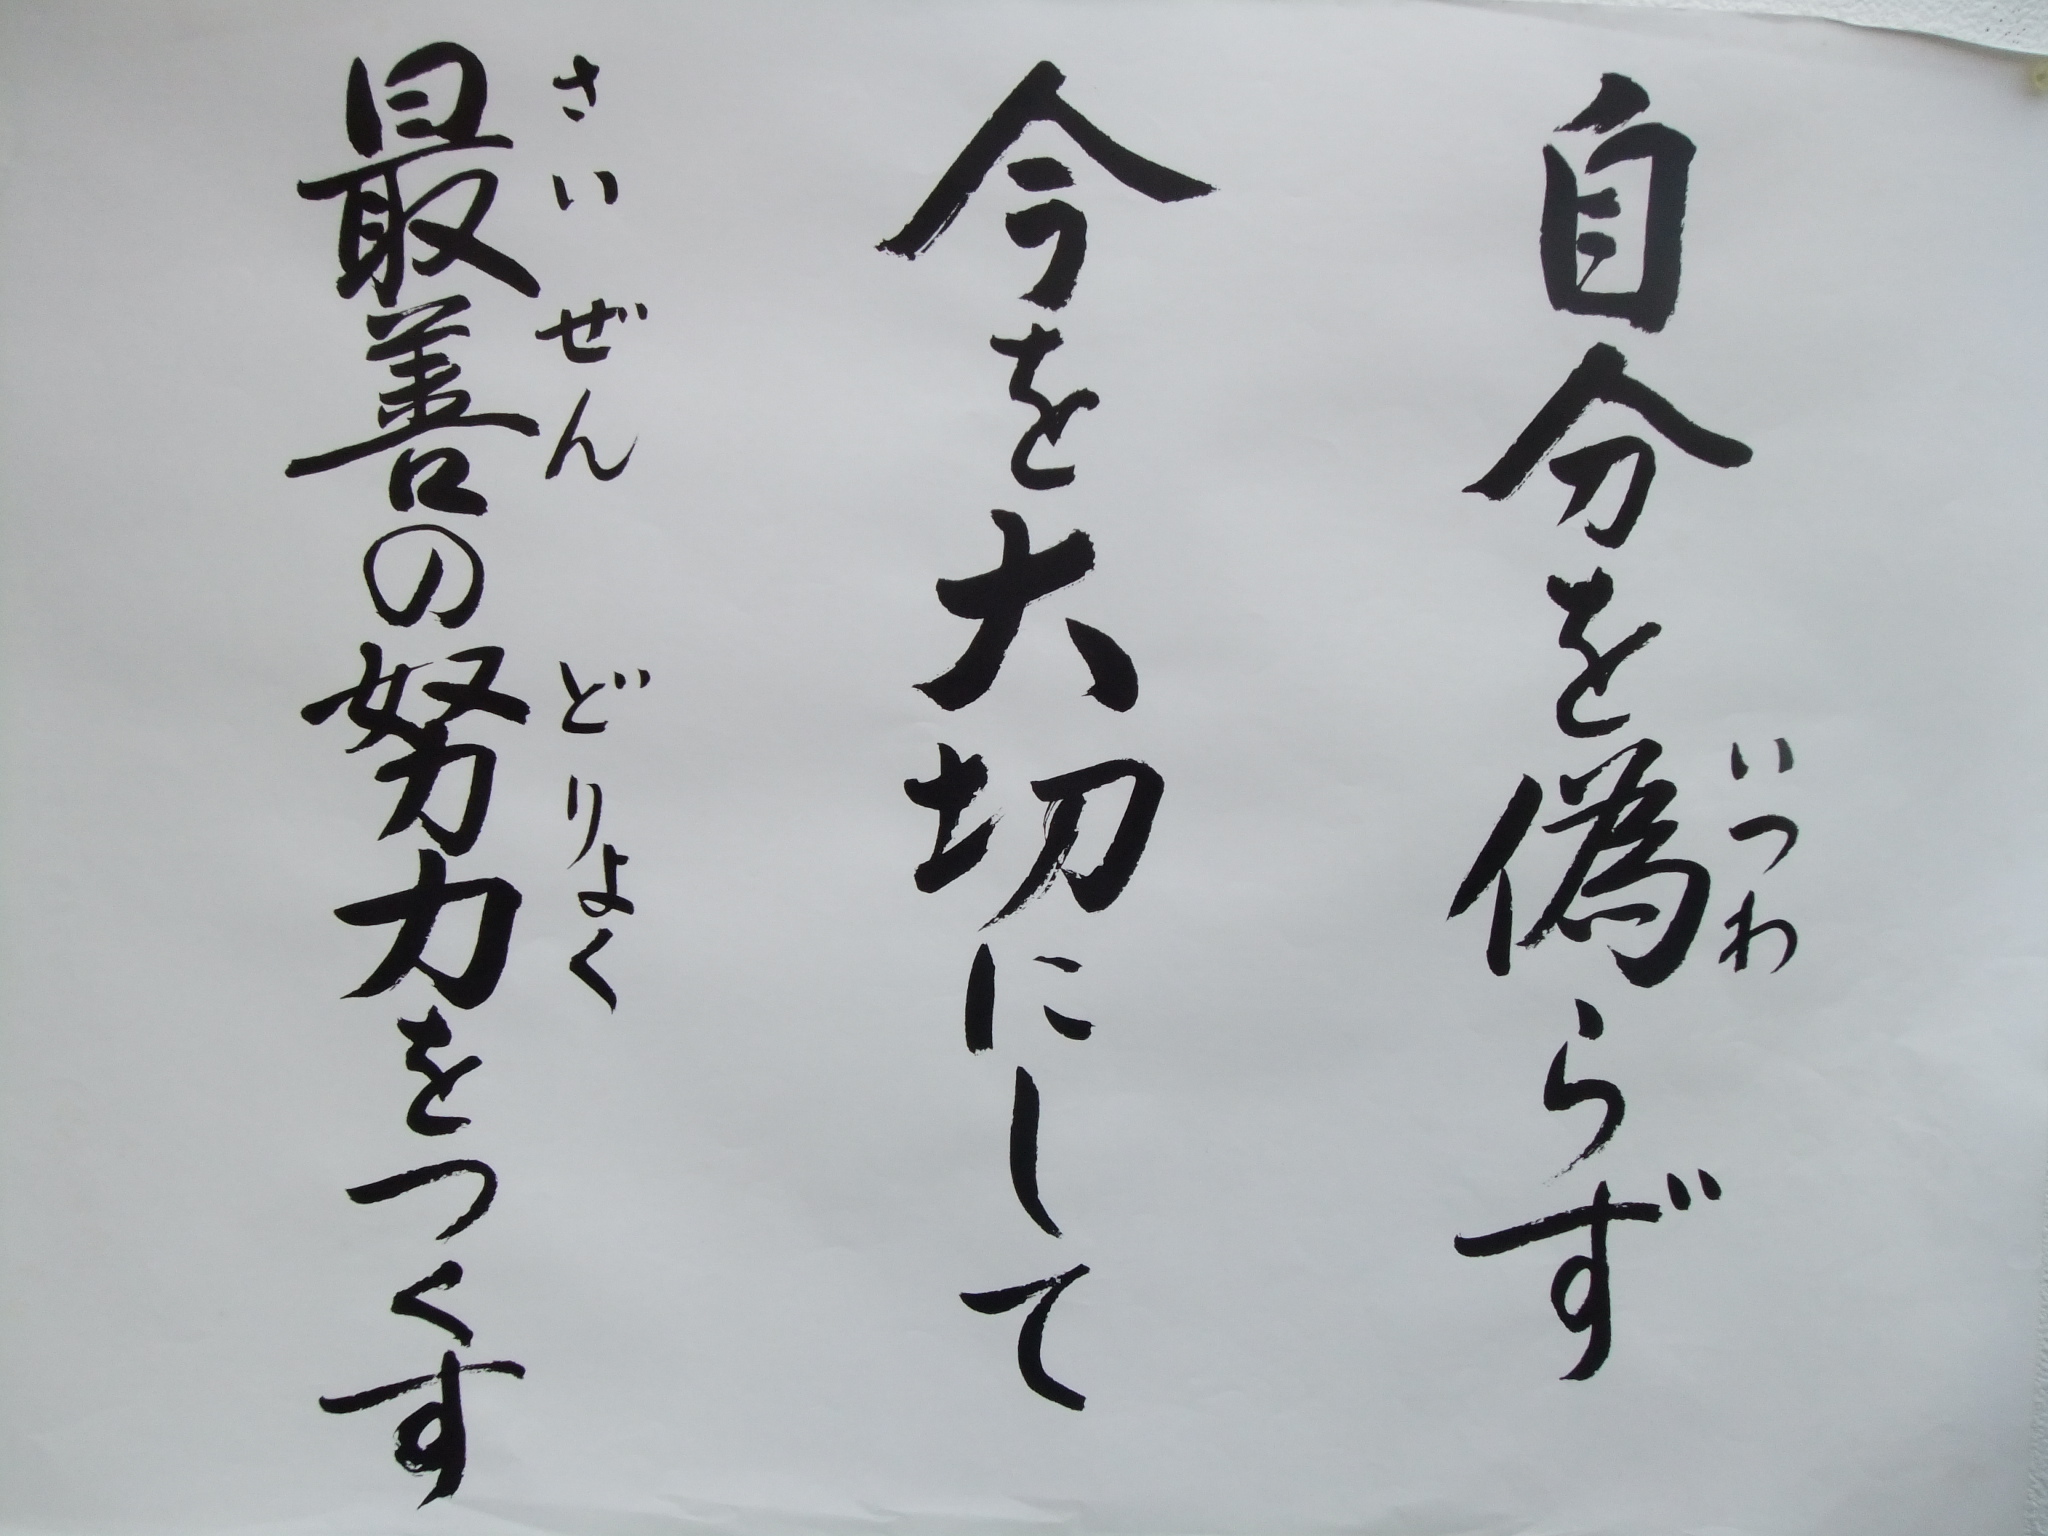 自分を偽らず
いつわ
今を大切にして
最善の努力をつくす
さいぜん どりよく